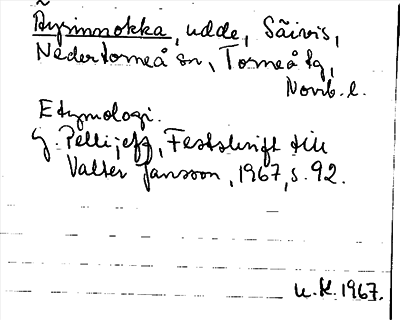 Äyrinnokka, udde, Säivis,
Nedertorneå sn, Torneå tg,
Norrb. l.
Etymologi.
G. Pellijeff, Festskrift till
Valter Jansson, 1967, s. 92.
U. K. 1967.